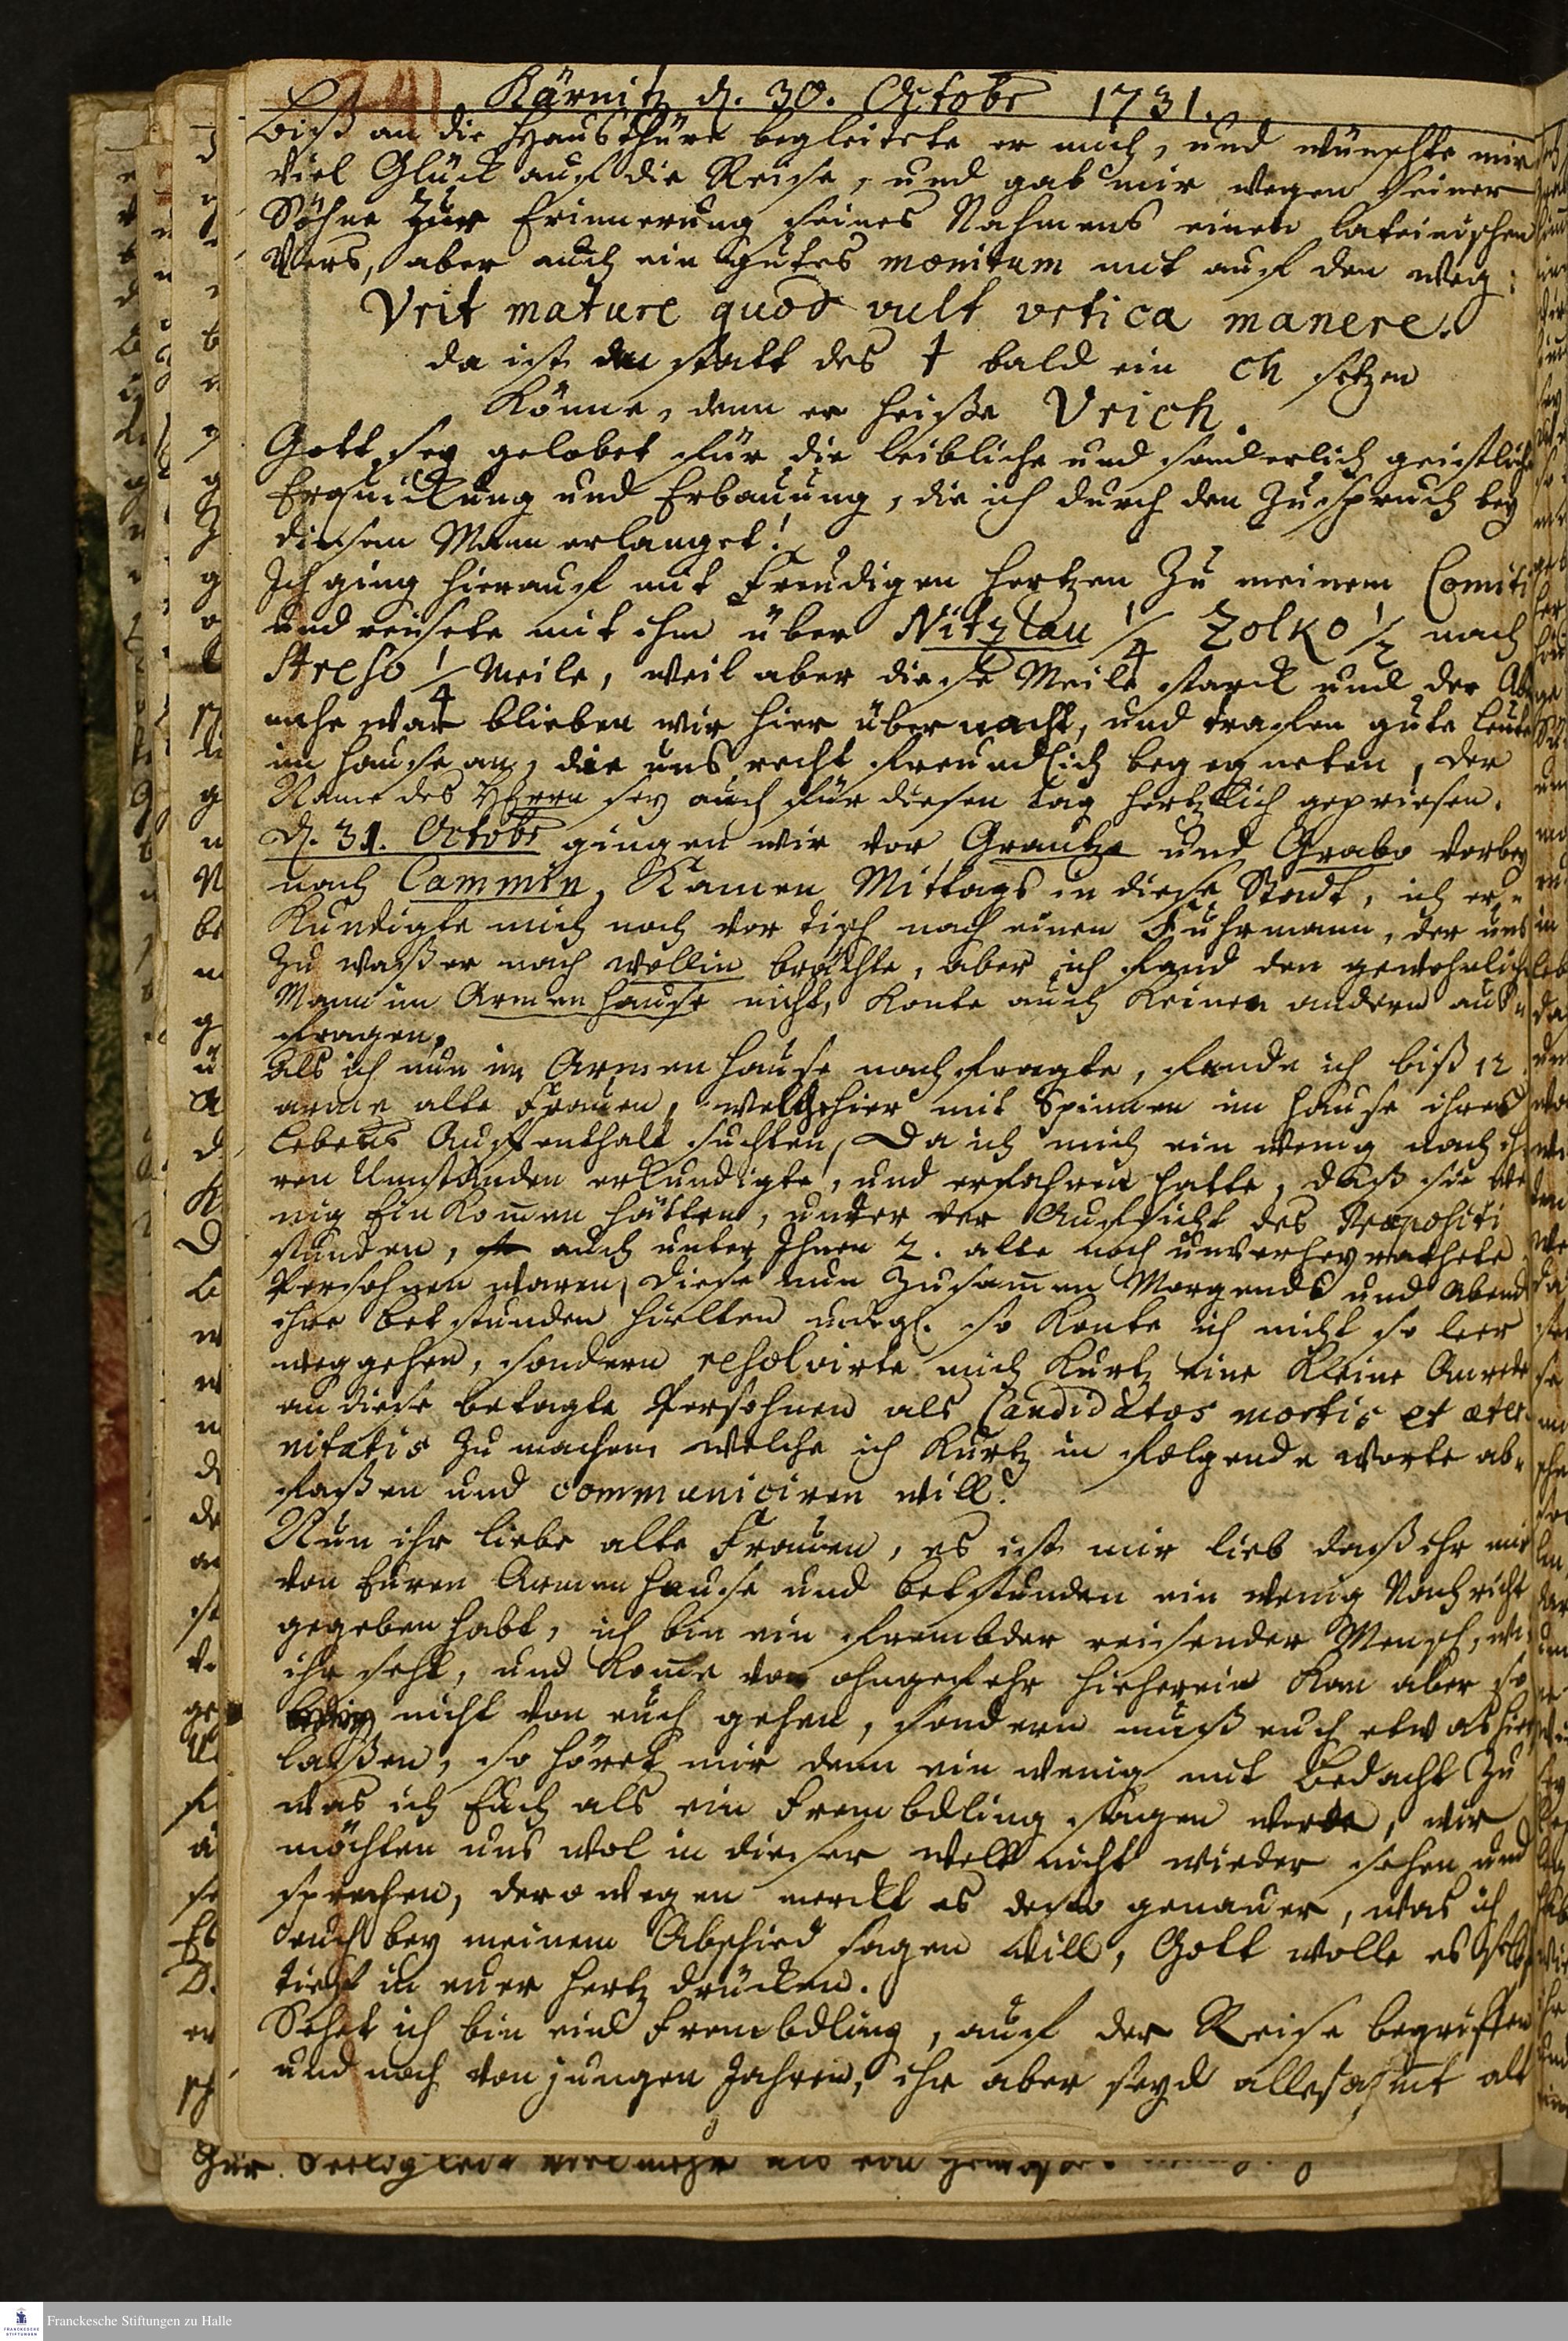 241
Kärnitz d. 30. Octobr 1731.
Biß an die Hausthüre begleitete er mich, und wünschte mir
viel Glück auf die Reise, und gab mir wegen seiner
Söhne zur Erinnerung seines Nahmens einen lateinischen
Vers, aber auch ein gutes monitum mit auf den weg:
Vrit mature quod vult vrtica manere.
da ist an statt des t bald ein ch setzen
könne, denn er heiße Vrich.
Gott sey gelobet für die leibliche und sonderlich geistliche
Erquickung und Erbauung, die ich durch den Zuspruch bey
diesem Mann erlanget!
Ich ging hierauf mit Freudigen Hertzen zu meinem Comiti
und reisete mit ihm über Nitzlau 1/4 Zolko 1/2 nach
Streso 1/4 Meile, weil aber diese Meile starck und der Ab
nahe war blieben wir hier über nacht, und trafen gute Leute
im Hause an, die uns recht freundlich begegneten, der
Name des HErrn sey auch für diesen tag hertzlich gepriesen.
d. 31. Octobr gingen wir vor Grautze und Grabo vorbey
nach Cammin, Kamen Mittags in diese Stadt, ich er-
kundigte mich noch vor tisch nach einen Fuhrmann, der uns
zu waßer nach wollin brächte, aber ich fand den gewohnlich
Mann im Armenhause nicht, konte auch keinen andern aus-
fragen.
Als ich nun im Armenhause nachfragte, fande ich biß 12
arme alte Frauen, welche hier mit Spinnen im Hause ihres
Lebens Auffenthalt suchten, Da ich mich ein wenig nach ih
ren Umständen erkundigte, und erfahren hatte, daß sie we
nig Einkomen hätten, unter der Aufsicht des Præpositi
stünden, auch unter Ihnen 2. alte noch unverheyrathete
Persohnen waren, diese nun zusamen Morgends und Abends
ihre betstunden hielten u. dergl. so konte ich nicht so leer
weggehen, sondern resolvirte mich kurtz eine kleine Anrede
an diese betagte Persohnen als Candidatos mortis et æter-
nitatis zu machen welche ich kurtz in folgende worte ab-
faßen und communiciren will.
Nun ihr liebe alte Frauen, es ist mir lieb daß ihr mir
von Euren Armenhause und betstunden ein wenig Nachricht
gegeben habt, ich bin ein frembder reisender Mensch, wie
ihr seht, und kome von ohngefehr hieherein kan aber so
nicht von euch gehen, sondern muß euch etwas hier
laßen, so höret mir denn ein wenig mit Bedacht zu
was ich Euch als ein Frembdling sagen werde, wir
möchten uns wol in dieser welt nicht wieder sehen und
sprechen, derowegen merckt es desto genauer, was ich
euch bey meinem Abschied sagen will, Gott wolle es selbst
tieff in euer Hertz drücken.
Sehet ich bin eine Frembdling, auf der Reise begriffen
und noch von jungen Jahren, ihr aber seyd allesamt alt
Franckesche Stiftungen zu Halle